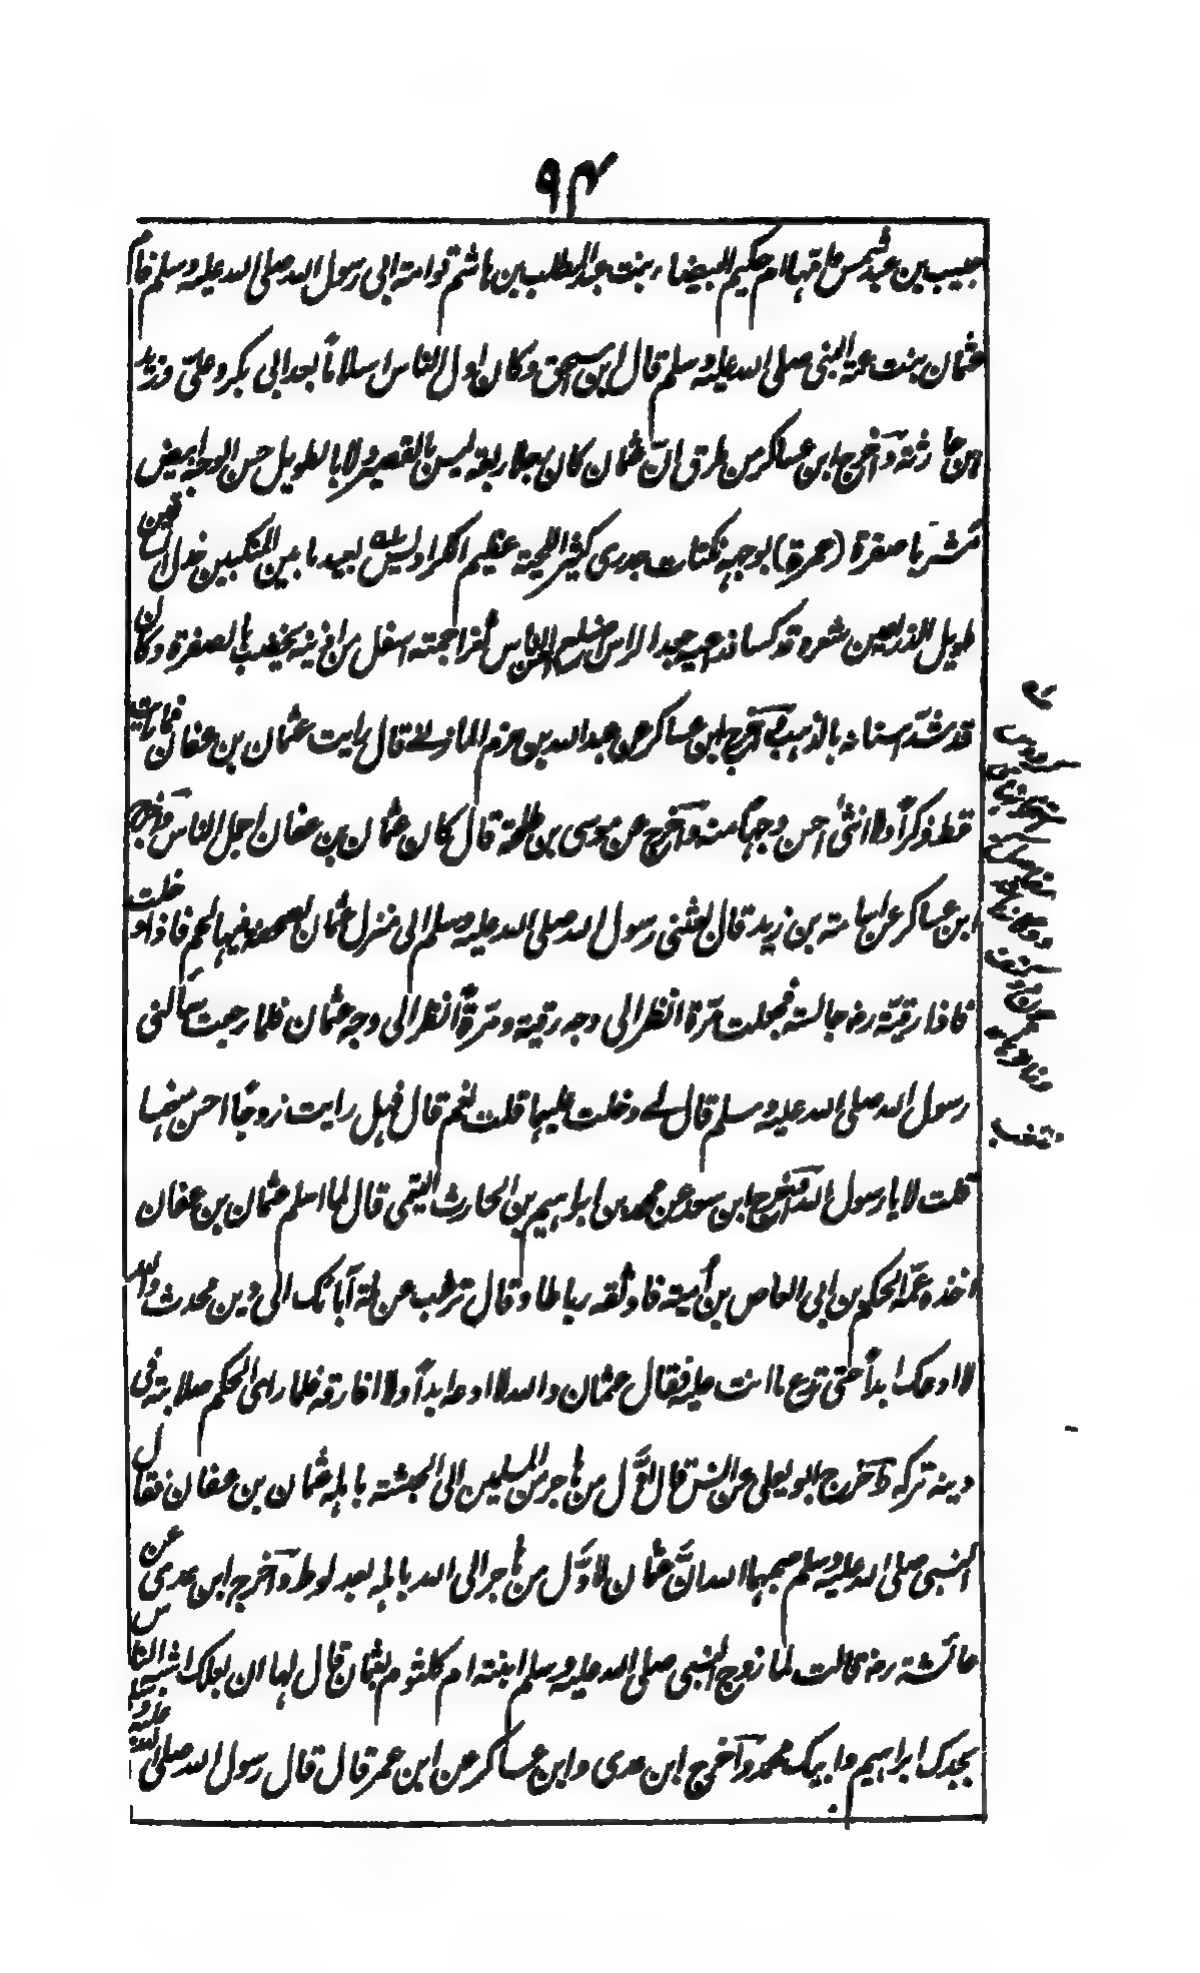 ٩٤
حبيب بن عبد شمس وامها ام حكيم البيضاء بنت عبد المطلب بن هاشم توامة ابى رسول الله صلى الله عليه وسلم فام
عثمان بنت عمة النبى صلى الله عليه وسلم قال ابن اسحق وكان اول الناس اسلاماً بعد ابى بكر وعلىّ وزيد
ابن حارثة وآخرج ابن عساكر من طرق انّ عثمان كان رجلا ربعة ليس بالقصير ولا بالطويل حسن الوجه ابيض
مشرباً صفرة (حمرة) بوجهه نكتات جدرى كثير اللحية عظيم الكراديس بعيد ما بين المنكبين خدل الساقين
طويل الذراعين شعره قد كسا ذراعيه جعد الراس اضلع احسن الناس ثغراً جمته اسفل من اذنيه يخضب بالصفرة وكان
قد شدّ اسنانه بالذهب وآخرج ابن عساكر عن عبد الله بن حزم المازنے قال رايت عثمان بن عفان فما رايت
قط ذكراً ولا انثىٰ احسن وجهاً منه وآخرج عن موسى بن طلحة قال كان عثمان بن عفان اجمل الناس وآخرج
ابن عساكر عن اسامة بن زيد قال بعثنى رسول الله صلى الله عليه وسلم الى منزل عثمان بصحفة فيها لحم فاذا دخلت
فاذا رقيّة رض جالسة فجعلت مرّة انظر الى وجه رقية ومرةً انظر الى وجه عثمان فلما رجعت سالنى
رسول الله صلى الله عليه وسلم قال لے دخلت عليهما قلت نعم قال فهل رايت زوجاً احسن منهما
قلت لا يا رسول الله وآخرج ابن سعد عن محمد بن ابراهيم بن الحارث التيمى قال لما اسلم عثمان بن عفان
اخذه عمّه الحكم بن ابى العاص بن اُمية فاوثقه رباطا وقال ترغب عن ملة آبائك الى دين محدث والله
لا ادعك ابداً حتى تدع ما انت عليه فقال عثمان والله لا ادعه ابداً ولا افارقه فلما راى الحكم صلابته فى
دينه تركه وآخرج ابو يعلى عن انس قال اوّل من هاجر من المسلمين الى الحبشة باهله عثمان بن عفان فقال
النبى صلى الله عليه وسلم صحبهما الله انّ عثمان لاوّل من هاجر الى الله باهله بعد لوط وآخرج ابن عدى عن
عائشة رض قالت لما زوج النبى صلى الله عليه وسلم ابنته ام كلثوم بعثمان قال لها ان بعلك اشبه الناس
بجدك ابراهيم وابيك محمد وآخرج ابن عدى وابن عساكر عن ابن عمر قال قال رسول الله صلى الله عليه و